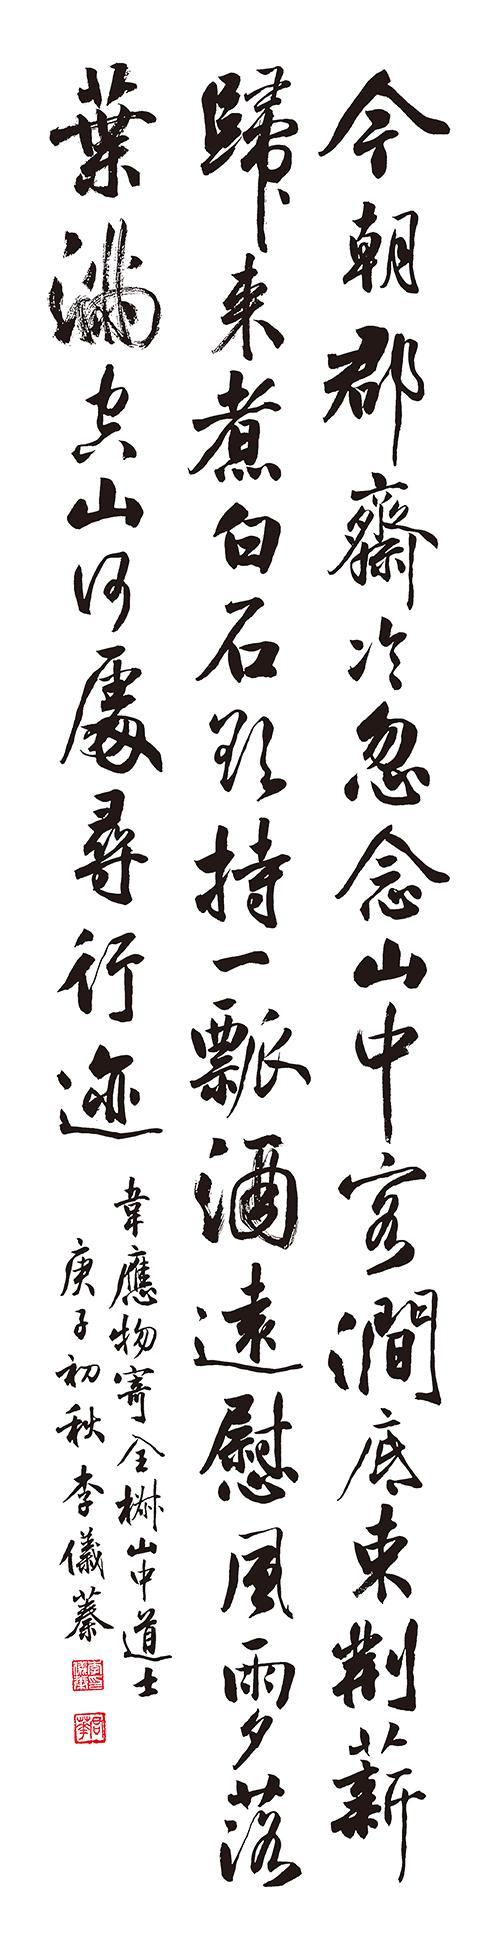 今朝郡齋冷忽念山中客澗底束荊薪
歸來煮白石欲持一瓢酒遠慰風雨夕落
葉滿空山何處尋行迹
韋應物寄全椒山中道士
庚子初秋李儀蓁